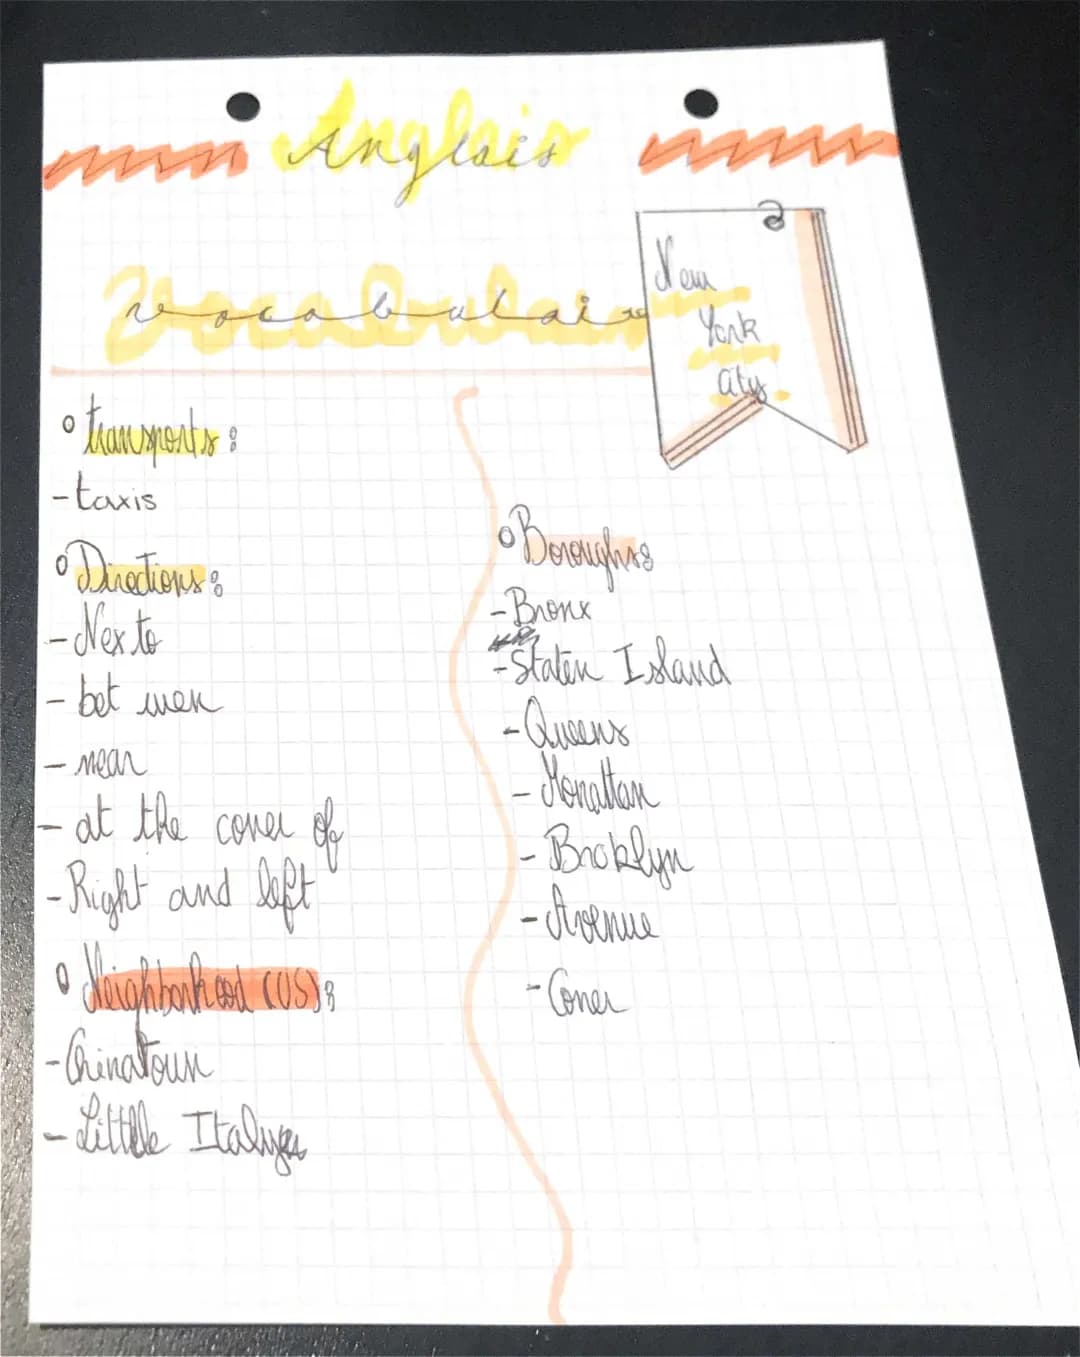 Anglais
vocabulaire
New
York
City
° transports :
- taxis
° Directions :
- Nex to
- bet wen
- near
- at the coner of
- Right and left
° Neighborhood (US) :
- Chinatown
- Little Italy
° Boroughs :
- Bronx
- Staten Island
- Queens
- Monattan
- Broklyn
- Avenue
- Coner